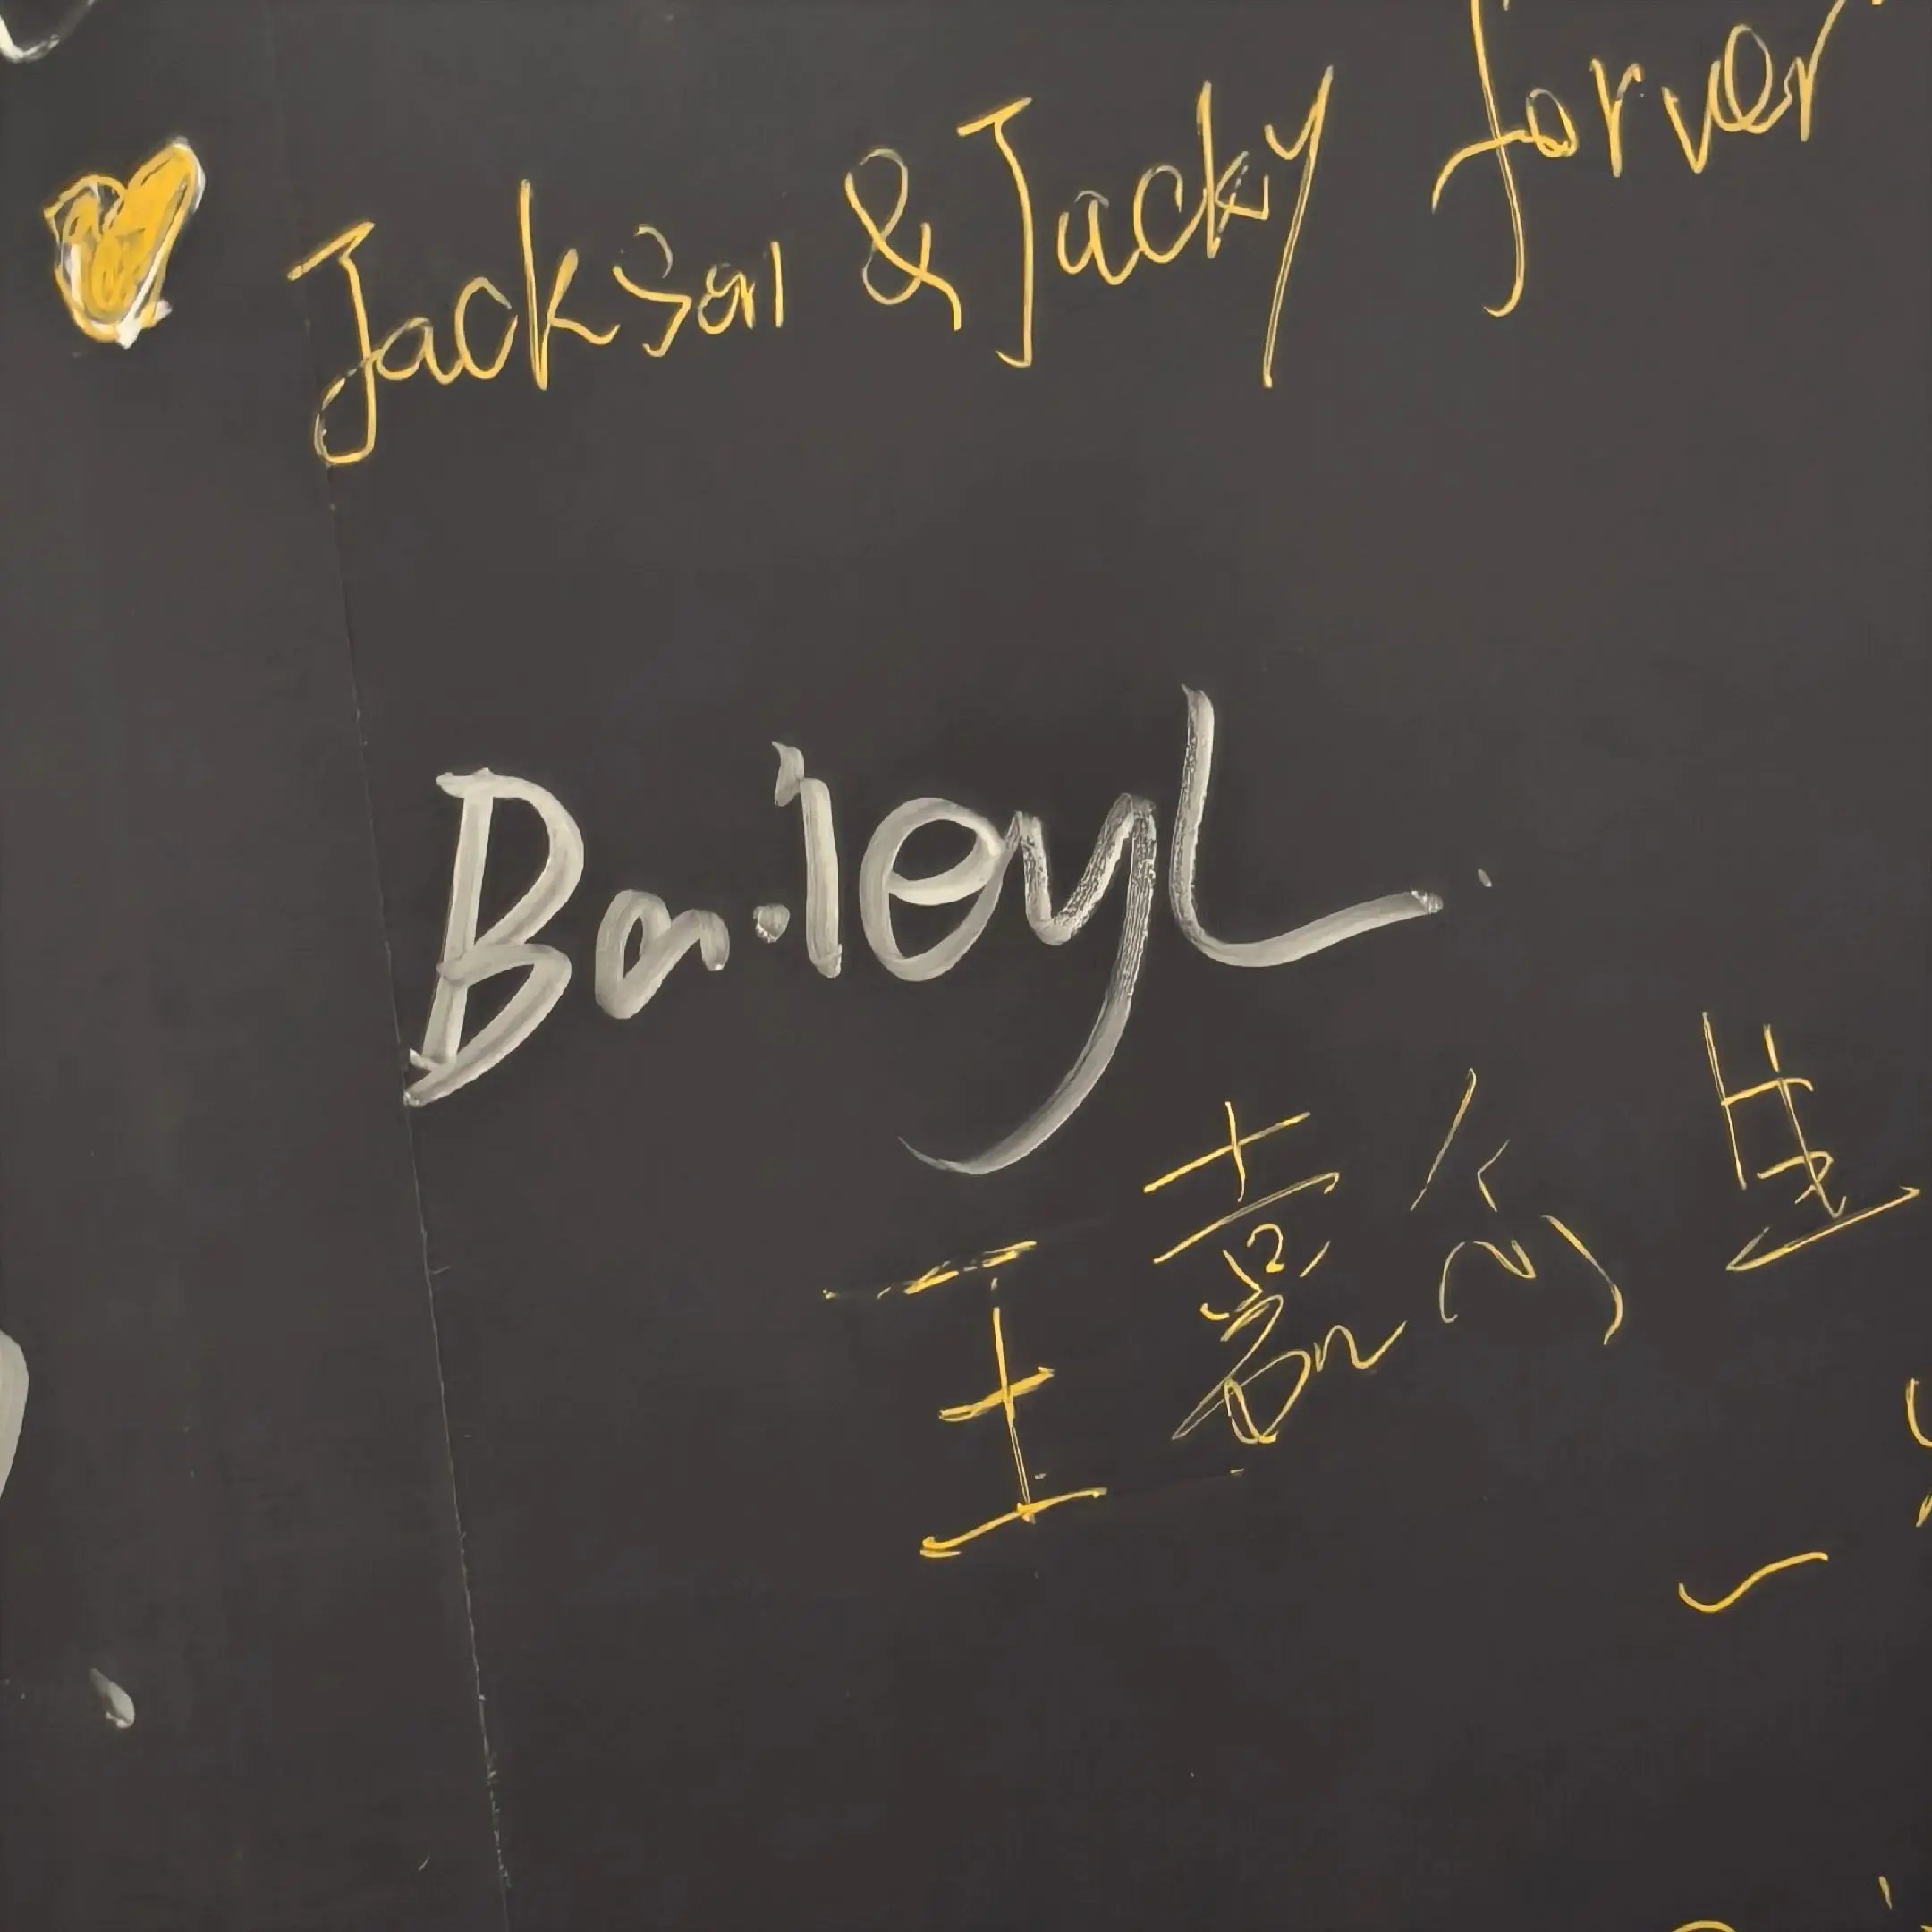 Jackson & Jacky forver
BaileyL
王嘉